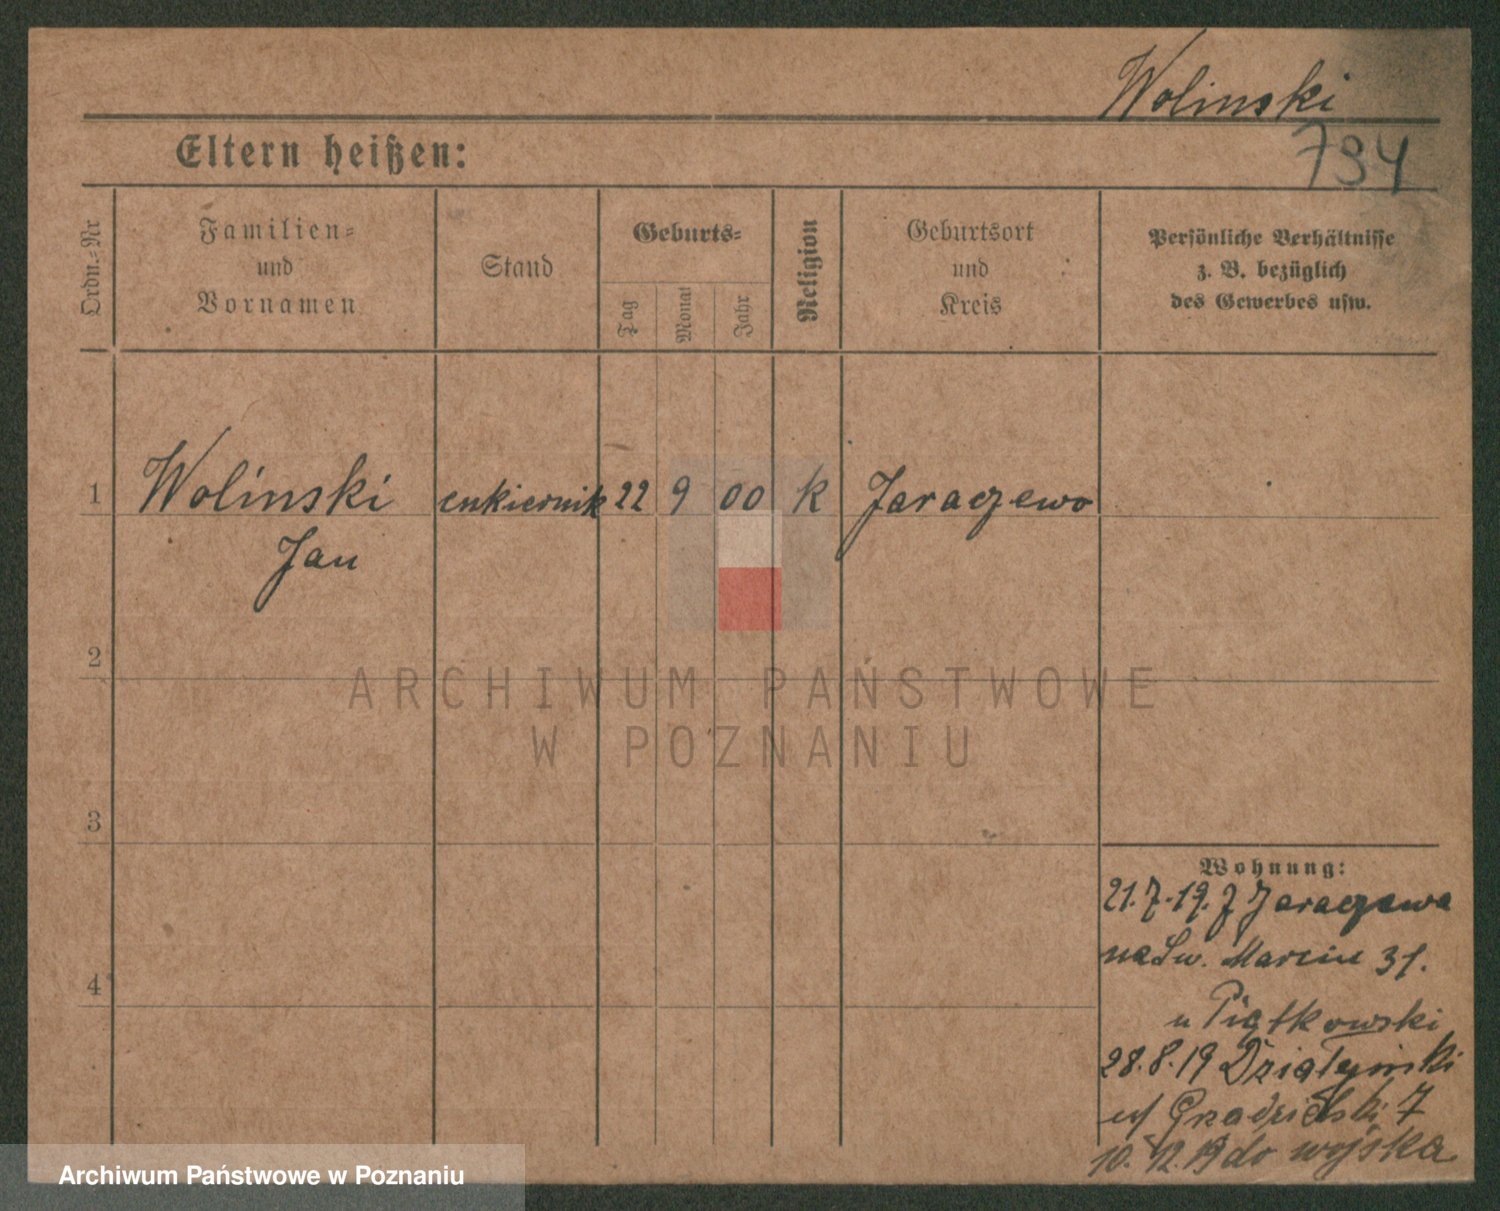 Wolinski
Eltern heißen:
794
Ordn.-Nr
Familien-
und
Vornamen
Stand
Geburts-
Tag
Monat
Jahr
Religion
Geburtsort
und
Kreis
Persönliche Verhältnisse
z. B. bezüglich
des Gewerbes usw.
1 Wolinski cukiernik 22 9 00 K Jaraczewo
Jan
2
ARCHIWUM PAŃSTWOWE
W POZNANIU
3
4
Wohnung:
21.7.19. Jaraczewa
na Św. Marcin 31.
u Piątkowski
28.8.19 Działyński
7
10.12.19 do wojska
Archiwum Państwowe w Poznaniu